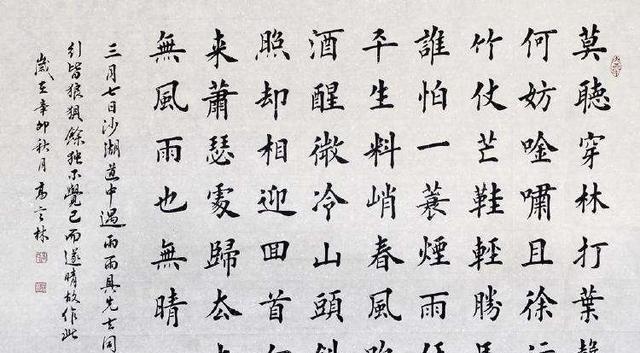 莫聽穿林打葉
何妨唫嘯且徐行
竹仗芒鞋輕勝
誰怕一蓑煙雨任
平生料峭春風吹
酒醒微冷山頭斜
照却相迎回首
来蕭瑟處歸去
無風雨也無晴
三月七日沙湖道中遇雨雨具先去同
引皆狼狽餘獨不覺已而遂晴故作此
歲在辛卯秋月高云林